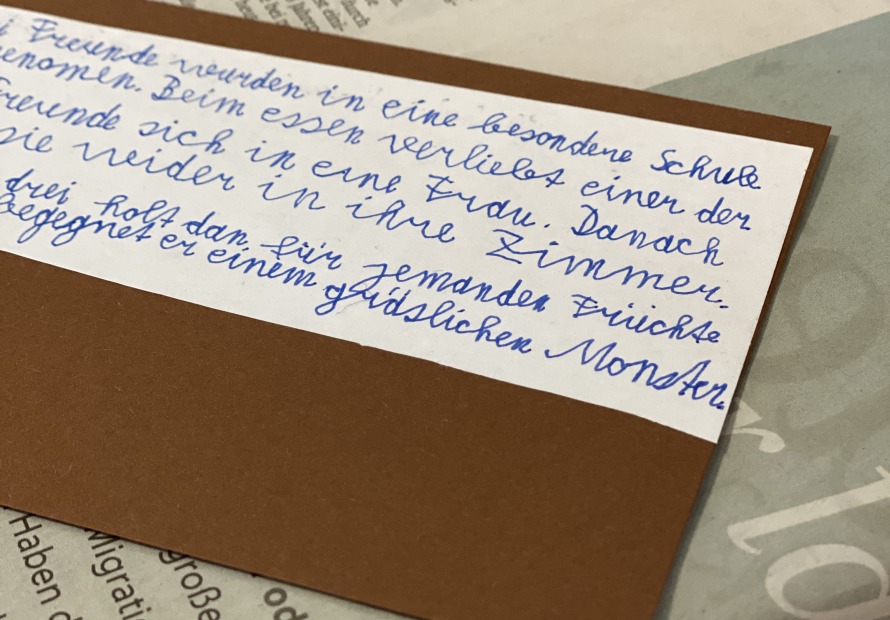 i Freunde wurden in eine besondene Schule
enomen. Beim essen verliebt einer der
reunde sich in eine Frau. Danach
sie weider in ihre Zimmer.
drei holt dan für jemanden Früchte
begegnet er einem gräslichen Monster.
durch
Haben d
Migrati
große
od